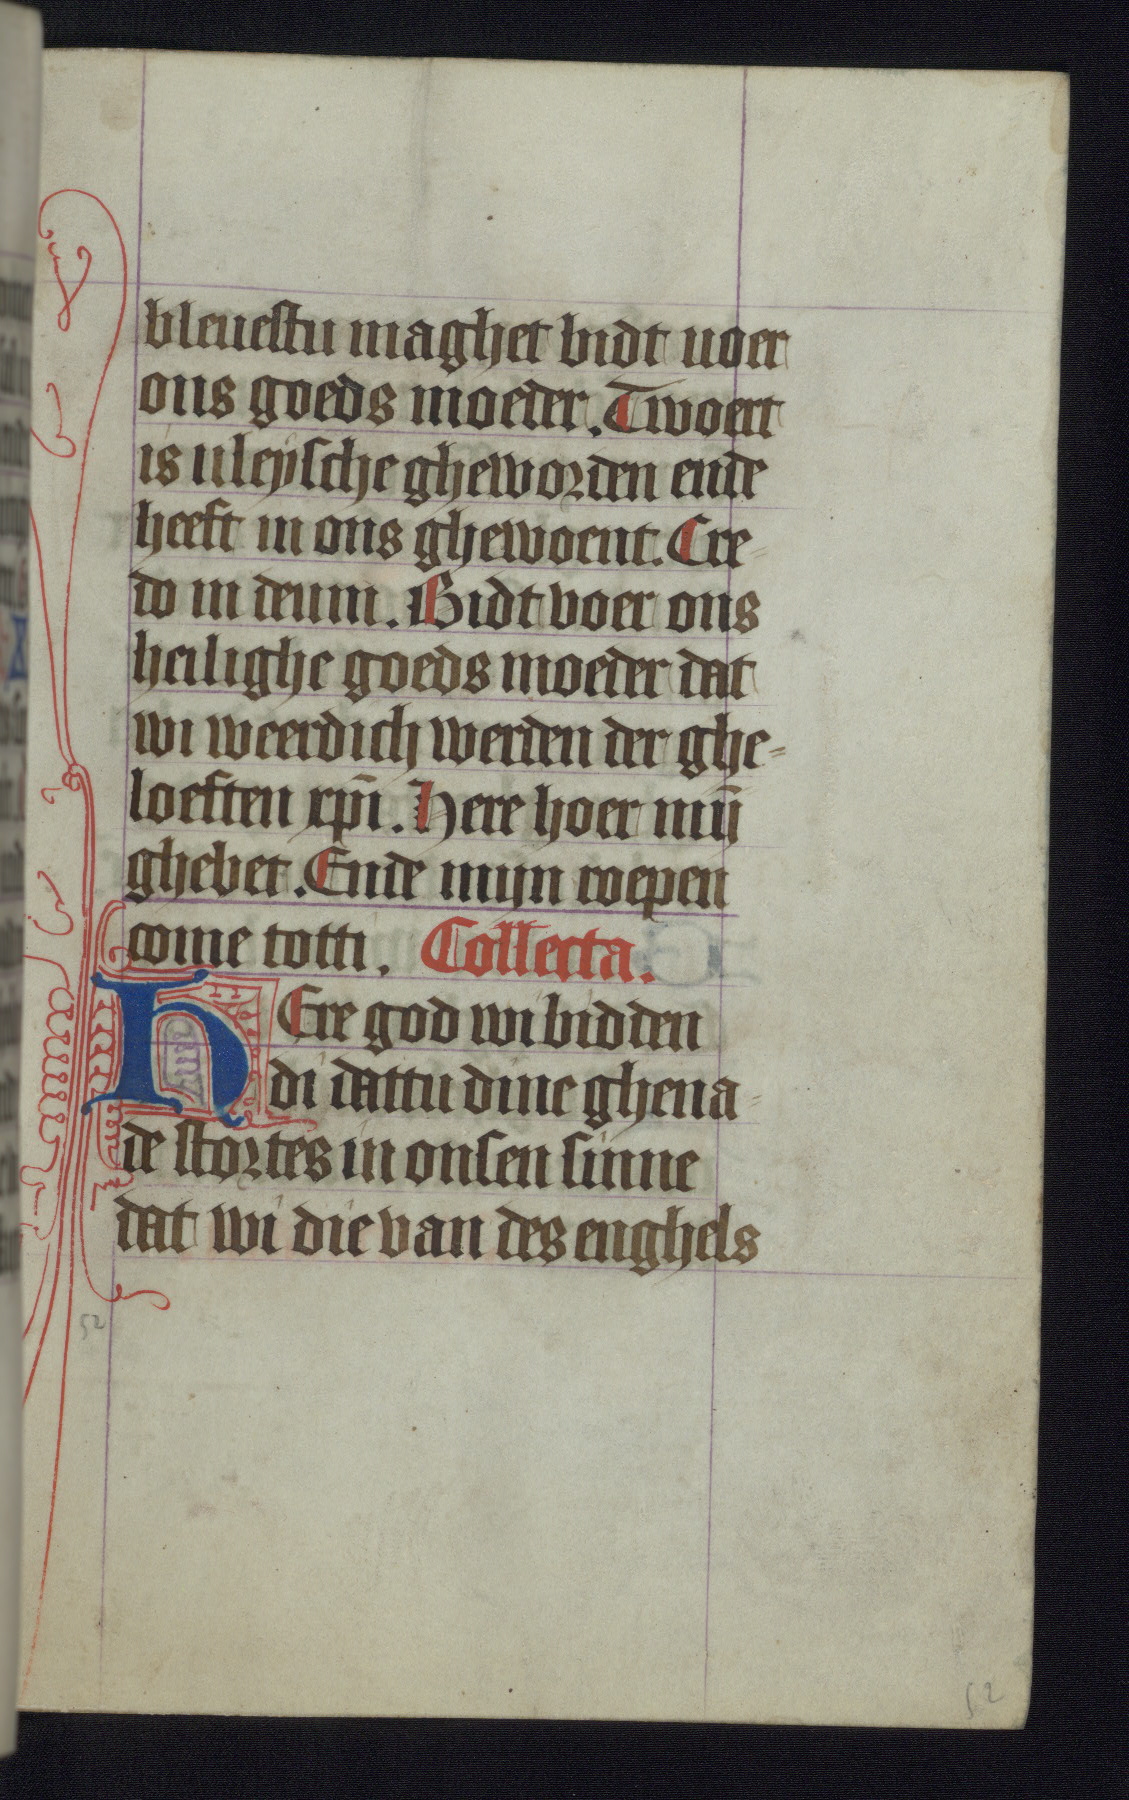 bleuestu maghet bidt uoer
ons goeds moeder. Twoert
is uleÿsche gheworden ende
heeft in ons ghewoent. Cre-
do in deum. Bidt voer ons
heilighe goeds moeder dat
wi weerdich werden der ghe-
loeften xp̄i. Here hoer mij̄
ghebet. Ende mijn roepen
come totti. Collecta.
HEre god wi bidden
di dattu dine ghena-
de stortes in onsen sinne
dat wi die van des enghels
52
52